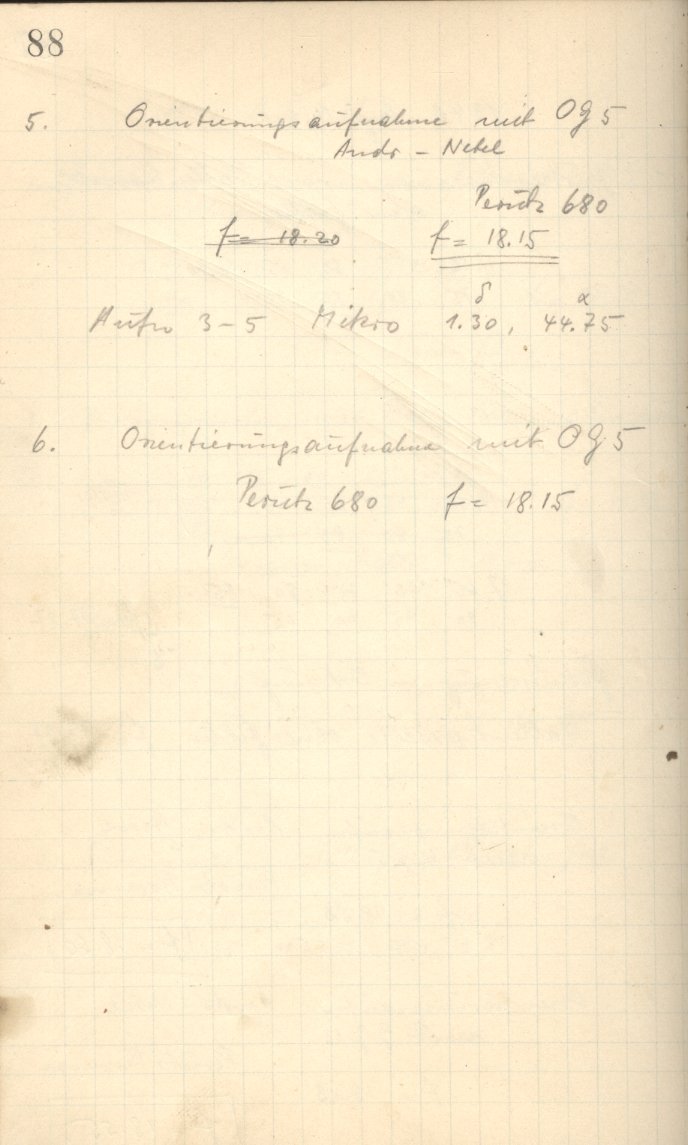 88
5. Orientierungsaufnahme mit OG5
Andr - Nebel
Perutz 680
f = 18.20 f = 18.15
δ α
Aufn 3-5 Mikro 1.30, 44.75
6. Orientierungsaufnahme mit OG5
Perutz 680 f = 18.15